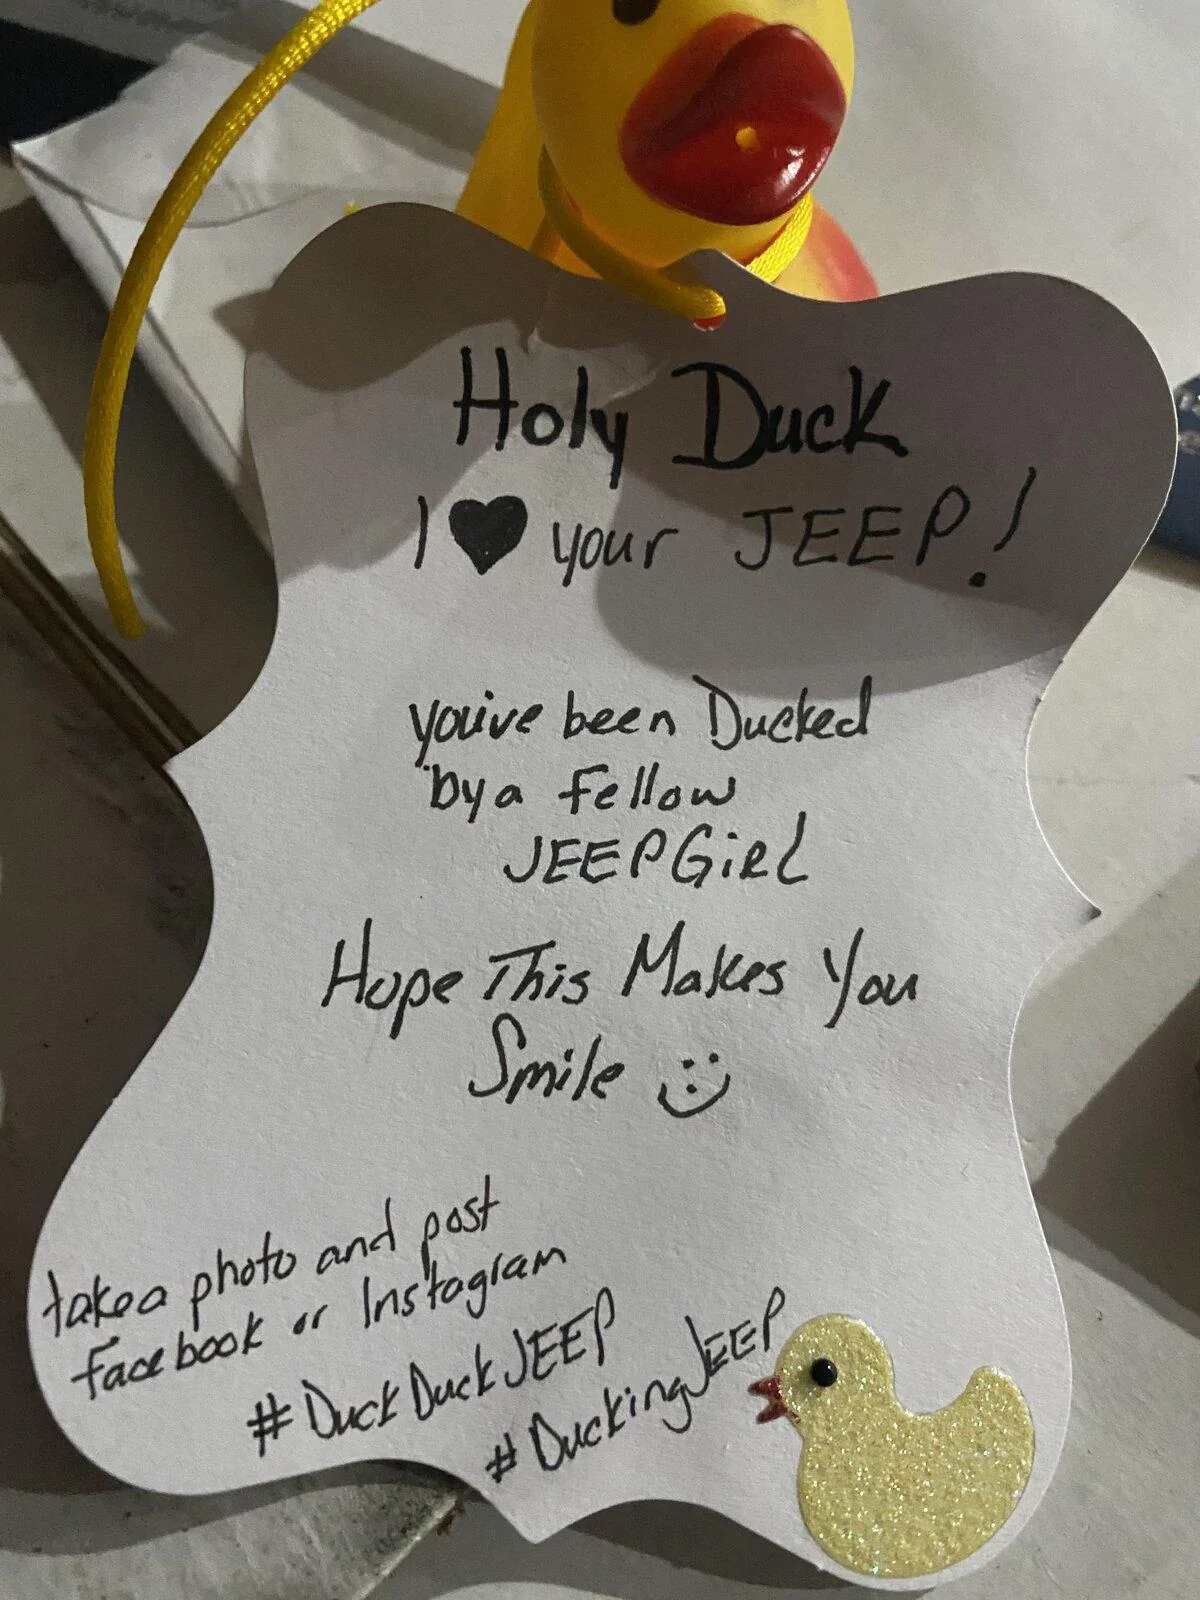 Holy Duck
I ♥ your JEEP!
you've been Ducked
by a fellow
JEEP GiRL
Hope This Makes You
Smile :)
take a photo and post
facebook or Instagram
#DuckDuckJEEP
#DuckingJEEP